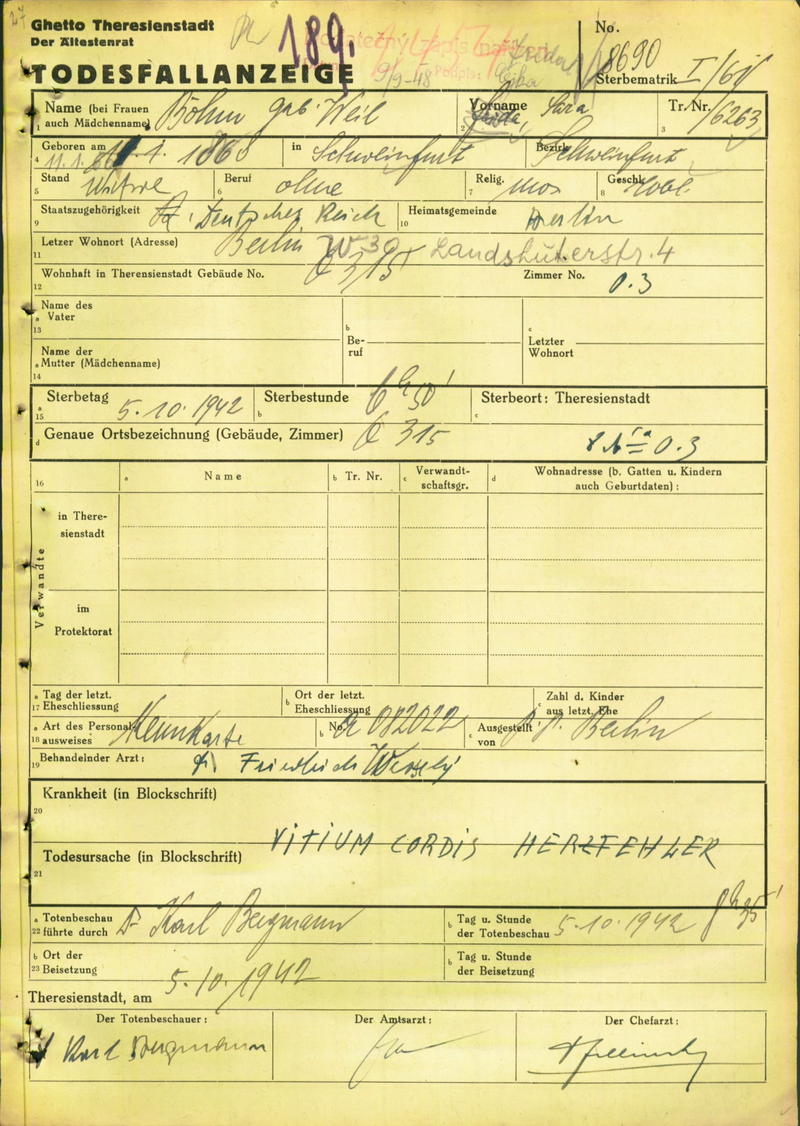 Ghetto Theresienstadt
Der Ältestenrat
189.
No. 8690
TODESFALLANZEIGE
9/9-48
Sterbematrik I/61
Name (bei Frauen auch Mädchenname) Böhm geb. Weil
1
Vorname Sara
2
Tr. Nr. I/6263
3
Geboren am 11.1. 1868
4
in Schweinfurt
Bezirk Schweinfurt
Stand Witwe
5
Beruf ohne
6
Relig. mos
7
Geschl. weibl.
8
Staatszugehörigkeit Deutsches Reich
9
Heimatsgemeinde Berlin
10
Letzer Wohnort (Adresse) Berlin W 30 Landshuterstr. 4
11
Wohnhaft in Therensienstadt Gebäude No. Q 315
12
Zimmer No. 0.3
a Name des Vater
13
b Beruf
c Letzter Wohnort
a Name der Mutter (Mädchenname)
14
a Sterbetag 5.10.1942
15
b Sterbestunde 6h 50'
c Sterbeort: Theresienstadt
d Genaue Ortsbezeichnung (Gebäude, Zimmer) Q 315 0.3
16
a Name
b Tr. Nr.
c Verwandtschaftsgr.
d Wohnadresse (b. Gatten u. Kindern auch Geburtdaten):
Verwandte
in Theresienstadt
im Protektorat
a Tag der letzt. Eheschliessung
17
b Ort der letzt. Eheschliessung
c Zahl d. Kinder aus letzt. Ehe
a Art des Personalausweises Kennkarte
18
b No. A 082022
c Ausgestellt von P.P. Berlin
Behandelnder Arzt: Dr. Friedrich Wessely
19
Krankheit (in Blockschrift)
20
VITIUM CORDIS HERZFEHLER
Todesursache (in Blockschrift)
21
a Totenbeschau führte durch Dr Karl Bergmann
22
b Tag u. Stunde der Totenbeschau 5.10.1942 8h 35'
b Ort der Beisetzung
23
b Tag u. Stunde der Beisetzung
Theresienstadt, am 5.10.1942
Der Totenbeschauer:
Der Amtsarzt:
Der Chefarzt:
Dr Karl Bergmann